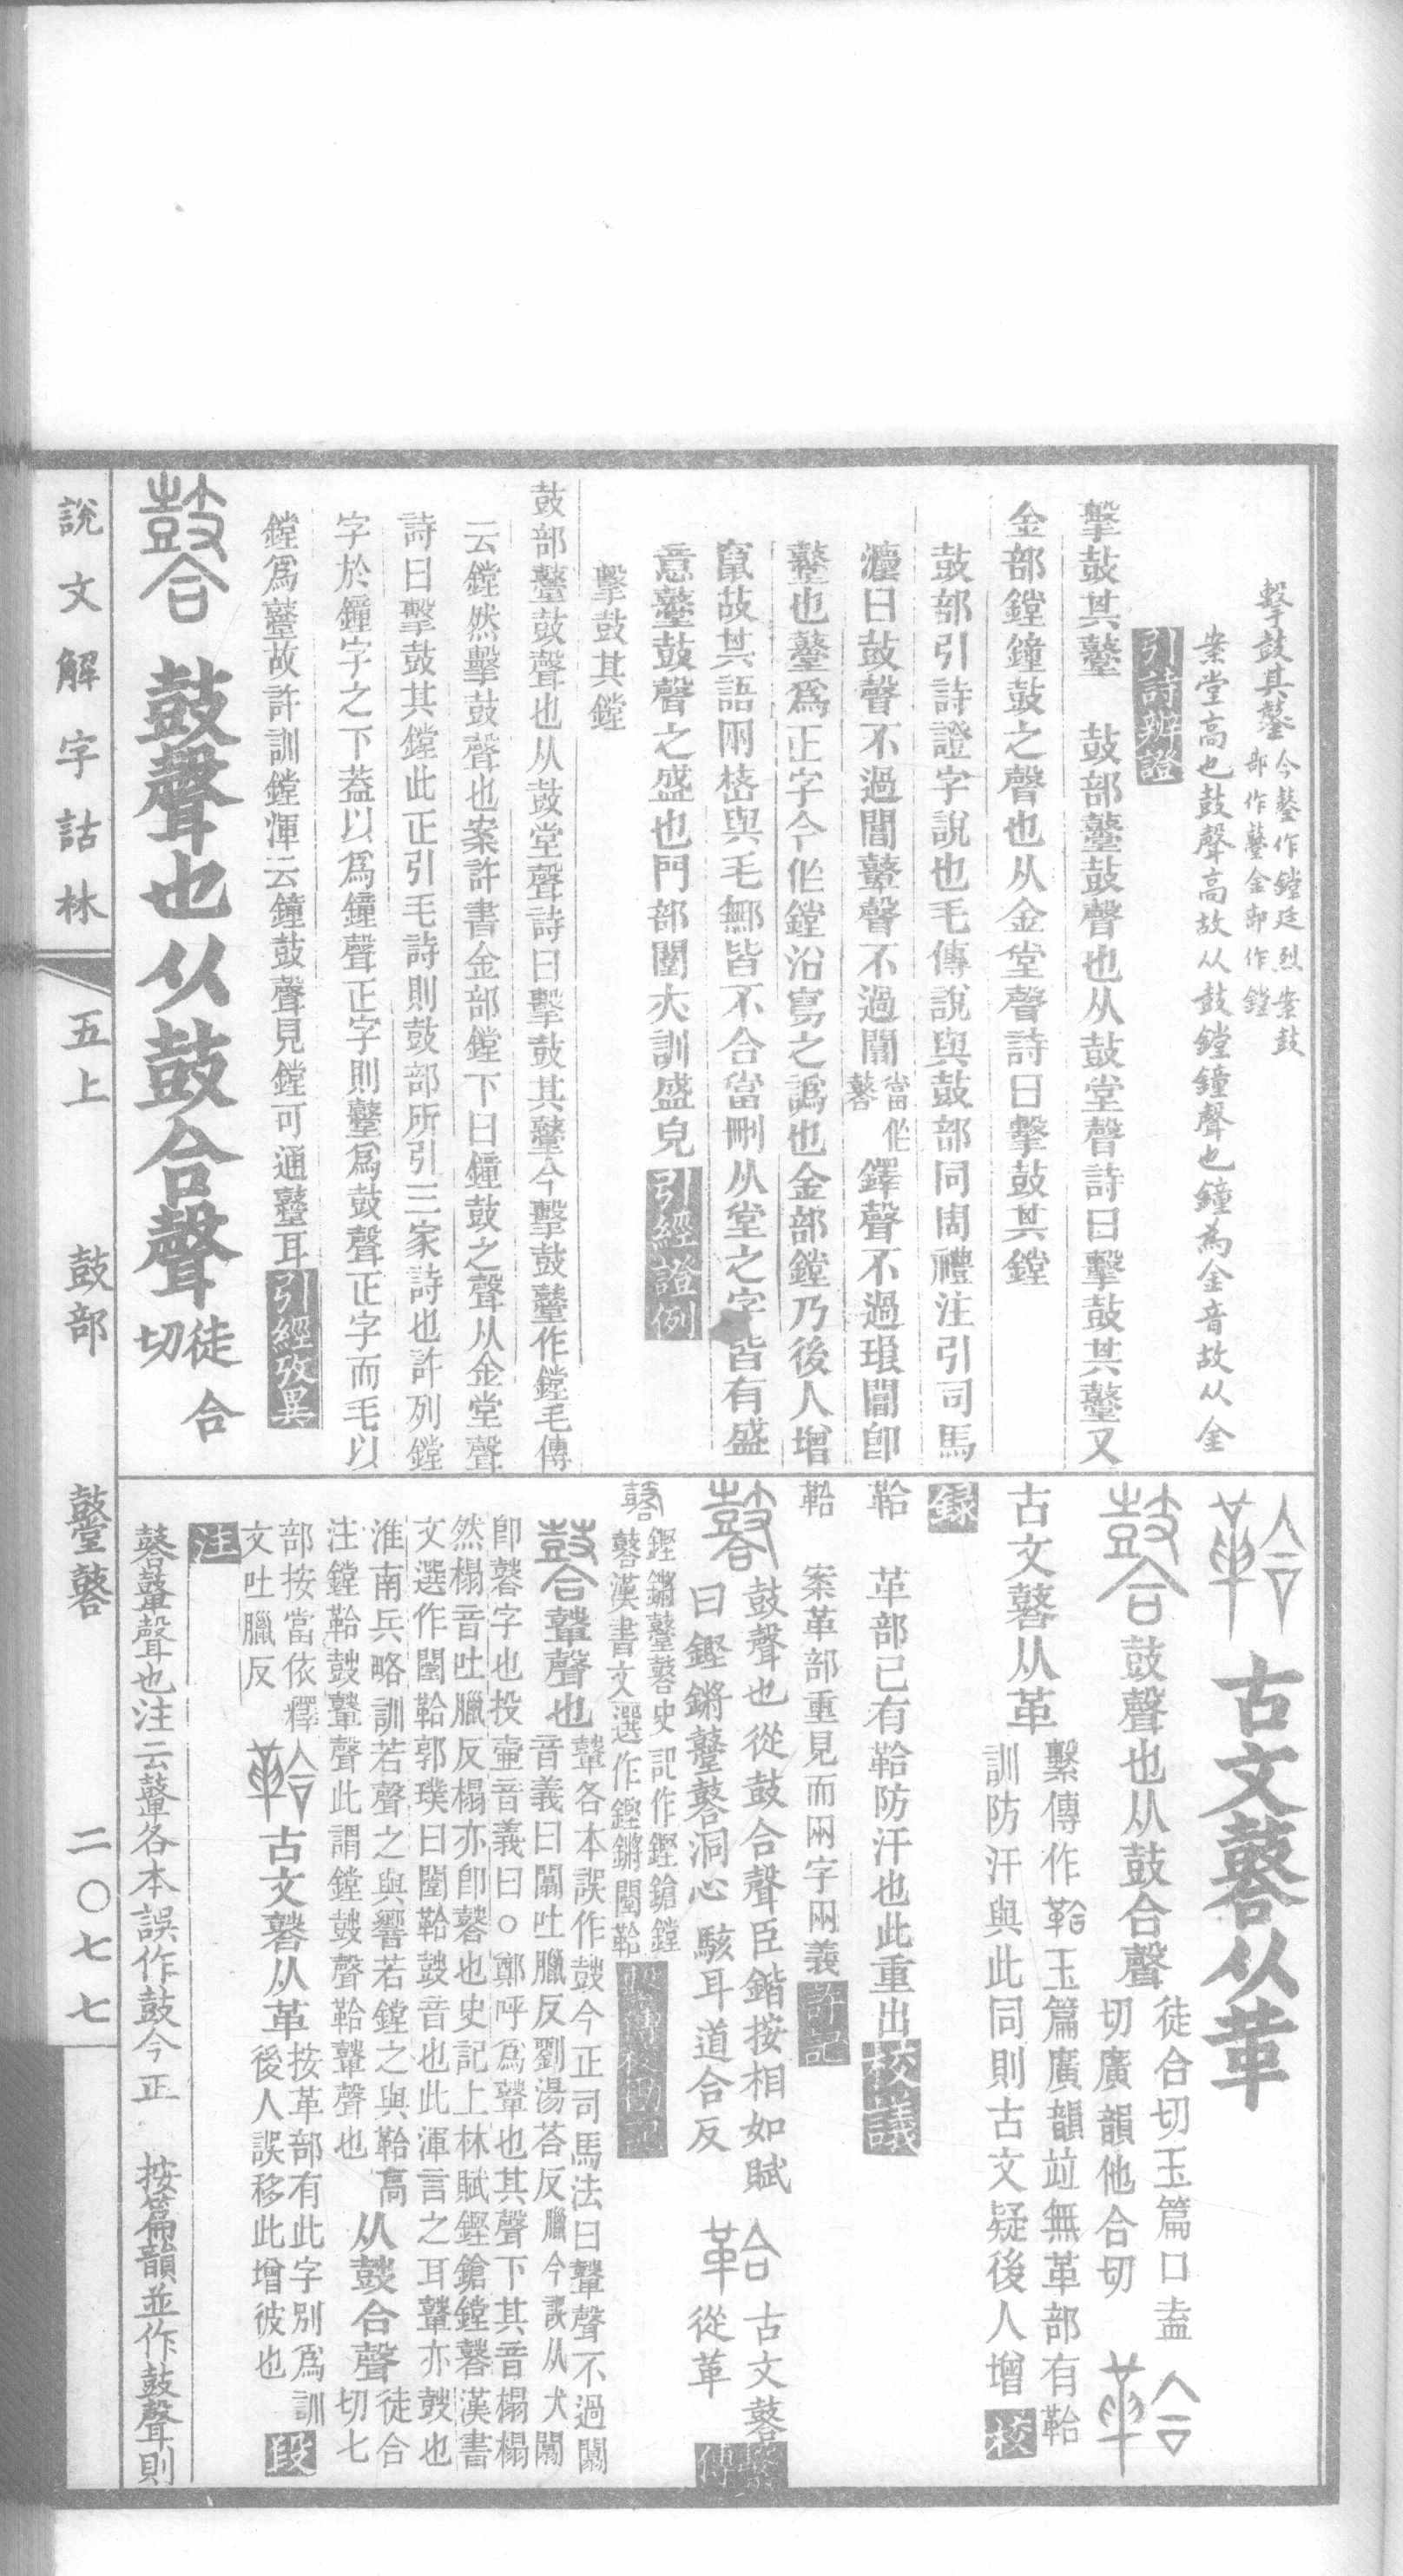 擊鼓其鼞今鼞作鏜廷烈案鼓部作鼞金部作鏜
案堂高也鼓聲高故从鼓鏜鐘聲也鐘為金音故从金
引詩辨證
擊鼓其鼞　鼓部鼞鼓聲也从鼓堂聲詩曰擊鼓其鼞又
金部鏜鐘鼓之聲也从金堂聲詩曰擊鼓其鏜
鼓部引詩證字說也毛傳說與鼓部同周禮注引司馬
灋曰鼓聲不過閶鼙聲不過闒當作鼛鐸聲不過琅閶卽
鼞也鼞爲正字今作鏜沿寫之譌也金部鏜乃後人增
竄故其語兩楛與毛鄭皆不合當刪从堂之字皆有盛
意鼞鼓聲之盛也門部闛亦訓盛皃引經證例
擊鼓其鏜
鼓部鼞鼓聲也从鼓堂聲詩曰擊鼓其鼞今擊鼓鼞作鏜毛傳
云鏜然擊鼓聲也案許書金部鏜下曰鐘鼓之聲从金堂聲
詩曰擊鼓其鏜此正引毛詩則鼓部所引三家詩也許列鏜
字於鐘字之下葢以爲鐘聲正字則鼞爲鼓聲正字而毛以
鏜爲鼞故許訓鏜渾云鐘鼓聲見鏜可通鼞耳引經攷異
鼛鼓聲也从鼓合聲徒合切
古文鼛从革
鼛鼓聲也从鼓合聲徒合切玉篇口盍切廣韻他合切
古文鼛从革繫傳作鞈玉篇廣韻竝無革部有鞈訓防汗與此同則古文疑後人增校
錄
鞈　革部已有鞈防汗也此重出校議
鞈　案革部重見而兩字兩義許記
鼛鼓聲也從鼓合聲臣鍇按相如賦曰鏗鏘鼞鼛洞心駭耳道合反　鞈古文鼛從革繫傳
鼛鏗鏘鼞鼛史記作鏗鎗鏜鼛漢書文選作鏗鏘闛鞈繫傳校勘記
鼛鼙聲也鼙各本誤作鼓今正司馬法曰鼙聲不過闒
音義曰闒吐臘反劉湯荅反臘今誤从犬闒
卽鼛字也投壷音義曰○鄭呼爲鼙也其聲下其音榻榻
然榻音吐臘反榻亦卽鼛也史記上林賦鏗鎗鏜鼛漢書
文選作闛鞈郭璞曰闛鞈鼓音也此渾言之耳鼙亦鼓也
淮南兵略訓若聲之與響若鏜之與鞈高
注鏜鞈鼓鼙聲此謂鏜鼓聲鞈鼙聲也从鼓合聲徒合切七
部按當依釋
文吐臘反　古文鼛从革按革部有此字別爲訓後人誤移此增彼也段
注
鼛鼙聲也注云鼙各本誤作鼓今正　按篇韻並作鼓聲則
說文解字詁林　五上　鼓部　鼞鼛　二〇七七